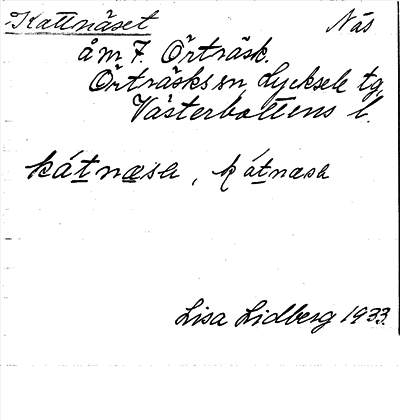 Kattnäset Näs
å m 7. Örträsk.
Örträsks sn, Lycksele tg,
Västerbottens l.
kát̲næsa, kát̲næsa
Lisa Lidberg 1933.